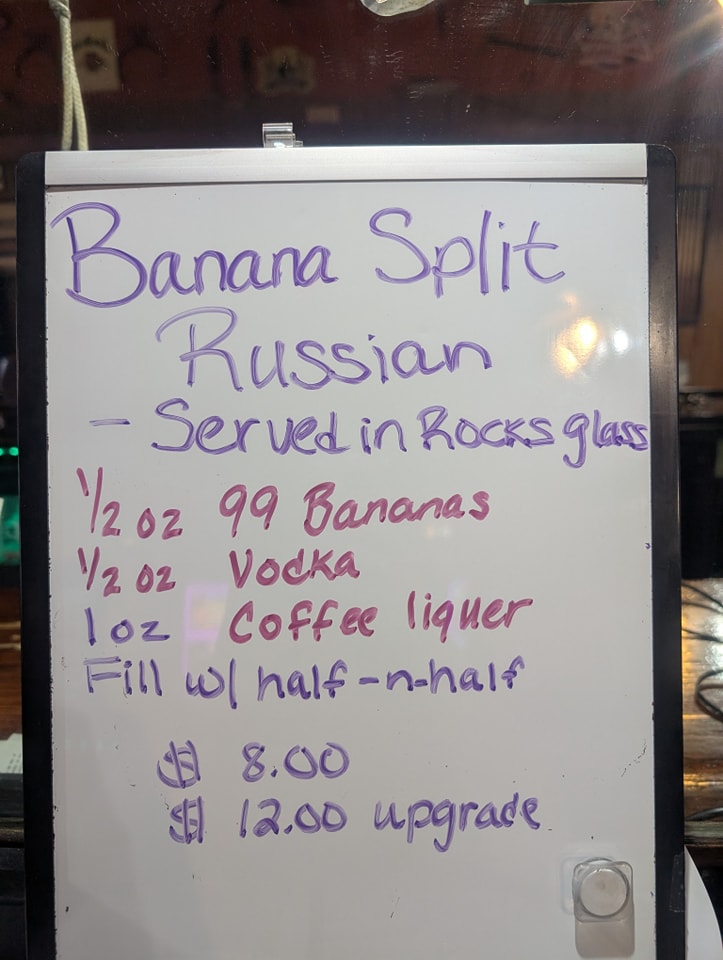 Banana Split
Russian
- Served in Rocks glass
1/2 oz 99 Bananas
1/2 oz Vodka
1 oz Coffee liquer
Fill w/ half-n-half
$ 8.00
$ 12.00 upgrade